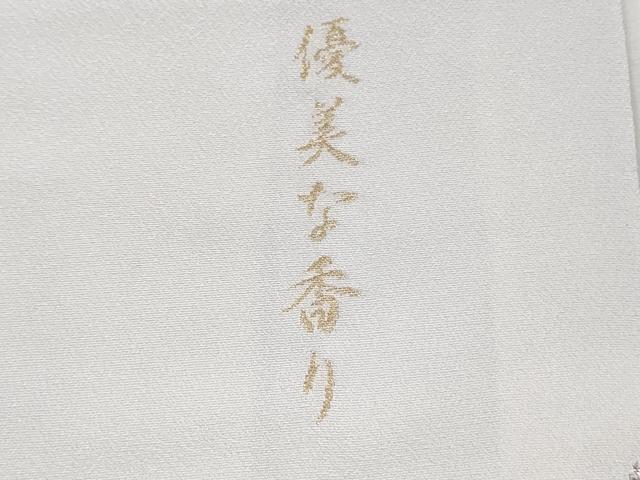 優美な香り